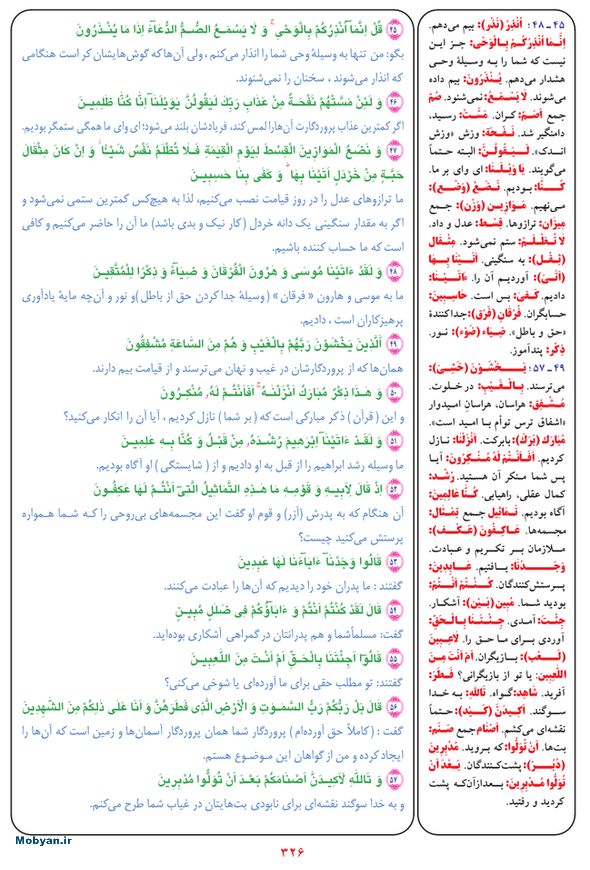 ۴۵ قُلْ إِنَّمَآ أُنْذِرُكُمْ بِالْوَحْىِ ۚ وَ لَا يَسْمَعُ الصُّمُّ الدُّعَآءَ إِذَا مَا يُنْذَرُونَ
بگو: من تنها به وسیلهٔ وحی شما را انذار می‌کنم ، ولی آن‌ها که گوش‌هایشان کر است هنگامی
که انذار می‌شوند ، سخنان را نمی‌شنوند.
۴۶ وَ لَئِنْ مَسَّتْهُمْ نَفْحَةٌ مِنْ عَذَابِ رَبِّكَ لَيَقُولُنَّ يٰوَيْلَنَآ إِنَّا كُنَّا ظٰلِمِينَ
اگر کمترین عذاب پروردگارت آن‌ها را لمس کند، فریادشان بلند می‌شود؛ ای وای ما همگی ستمگر بودیم.
۴۷ وَ نَضَعُ الْمَوَازِينَ الْقِسْطَ لِيَوْمِ الْقِيٰمَةِ فَلَا تُظْلَمُ نَفْسٌ شَيْئًا ۖ وَ إِنْ كَانَ مِثْقَالَ
حَبَّةٍ مِنْ خَرْدَلٍ أَتَيْنَا بِهَا ۗ وَ كَفَىٰ بِنَا حَسِبِينَ
ما ترازوهای عدل را در روز قیامت نصب می‌کنیم، لذا به هیچ‌کس کمترین ستمی نمی‌شود و
اگر به مقدار سنگینی یک دانه خردل (کار نیک و بدی باشد) ما آن را حاضر می‌کنیم و کافی
است که ما حساب کننده باشیم.
۴۸ وَ لَقَدْ ءَاتَيْنَا مُوسَىٰ وَ هٰرُونَ الْفُرْقَانَ وَ ضِيَآءً وَ ذِكْرًا لِلْمُتَّقِينَ
ما به موسی و هارون « فرقان » (وسیلهٔ جدا کردن حق از باطل)و نور و آن‌چه مایهٔ یادآوری
پرهیزکاران است ، دادیم.
۴۹ الَّذِينَ يَخْشَوْنَ رَبَّهُمْ بِالْغَيْبِ وَ هُمْ مِنَ السَّاعَةِ مُشْفِقُونَ
همان‌ها که از پروردگارشان در غیب و نهان می‌ترسند و از قیامت بیم دارند.
۵۰ وَ هٰذَا ذِكْرٌ مُبَارَكٌ أَنْزَلْنٰهُ ۚ أَفَأَنْتُمْ لَهُۥ مُنْكِرُونَ
و این ( قرآن ) ذکر مبارکی است که ( بر شما ) نازل کردیم ، آیا آن را انکار می‌کنید؟
۵۱ وَ لَقَدْ ءَاتَيْنَآ إِبْرٰهِيمَ رُشْدَهُۥ مِنْ قَبْلُ وَ كُنَّا بِهِ عٰلِمِينَ
ما وسیله رشد ابراهیم را از قبل به او دادیم و از ( شایستگی ) او آگاه بودیم.
۵۲ إِذْ قَالَ لِأَبِيهِ وَ قَوْمِهِ مَا هٰذِهِ التَّمَاثِيلُ الَّتِىٓ أَنْتُمْ لَهَا عٰكِفُونَ
آن هنگام که به پدرش (آزر) و قوم او گفت این مجسمه‌های بی‌روحی را کـه شـما همواره
پرستش می‌کنید چیست؟
۵۳ قَالُوا وَجَدْنَآ ءَابَآءَنَا لَهَا عٰبِدِينَ
گفتند : ما پدران خود را دیدیم که آن‌ها را عبادت می‌کنند.
۵۴ قَالَ لَقَدْ كُنْتُمْ أَنْتُمْ وَ ءَابَآؤُكُمْ فِى ضَلٰلٍ مُبِينٍ
گفت: مسلماًشما و هم پدرانتان در گمراهی آشکاری بوده‌اید.
۵۵ قَالُوٓا أَجِئْتَنَا بِالْحَقِّ أَمْ أَنْتَ مِنَ اللّٰعِبِينَ
گفتند: تو مطلب حقی برای ما آورده‌ای یا شوخی می‌کنی؟
۵۶ قَالَ بَلْ رَبُّكُمْ رَبُّ السَّمٰوٰتِ وَ الْأَرْضِ الَّذِى فَطَرَهُنَّ وَ أَنَا عَلَىٰ ذٰلِكُمْ مِنَ الشّٰهِدِينَ
گفت : (کاملاً حق آورده‌ام ) پروردگار شما همان پروردگار آسمان‌ها و زمین است که آن‌ها را
ایجاد کرده و من از گواهان این مـوضـوع هستم.
۵۷ وَ تَاللّٰهِ لَأَكِيدَنَّ أَصْنَامَكُمْ بَعْدَ أَنْ تُوَلُّوا مُدْبِرِينَ
و به خدا سوگند نقشه‌ای برای نابودی بت‌هایتان در غیاب شما طرح می‌کنم.
۴۵ ـ ۴۸: أُنْذِرُ (نَذَرَ): بیم می‌دهم.
إِنَّمَا أُنْذِرُكُمْ بِالْوَحْيِ: جز این
نیست که شما را به وسیله وحی
هشدار می‌دهم. يُنْذَرُونَ: بیم داده
می‌شوند. لَا يَسْمَعُ: نمی‌شنود. صُمّ
جمع أَصَمّ: کران. مَسَّتْ: رسید،
دامنگیر شد. نَفْحَة: وزش «وزش
اندک». لَيَقُولُنَّ: البته حتماً
می‌گویند. يَا وَيْلَنَا: ای وای بر ما.
كُنَّا: بودیم. نَضَعُ (وَضَعَ):
می‌نهیم. مَوَازِين (وَزَنَ): جمع
مِيزَان: ترازوها. قِسْط: عدل و داد.
لَا تُظْلَمُ: ستم نمی‌شود. مِثْقَال
(ثِقْل): به سنگینی. أَتَيْنَا بِهَا
(أَتَى): آوردیم آن را. ءَاتَيْنَا:
دادیم. كَفَىٰ: بس است. حَاسِبِينَ:
حسابگران. فُرْقَان (فَرَقَ): جداکنندهٔ
«حق و باطل». ضِيَاء (ضَوْء): نور.
ذِكْر: پندآموز.
۴۹ ـ ۵۷: يَخْشَوْنَ (خَشِيَ):
می‌ترسند. بِالْغَيْبِ: در خلوت.
مُشْفِق: هراسان، هراسانِ امیدوار
«اشفاق ترس توأم با امید است».
مُبَارَك (بَرَكَ): بابرکت. أَنْزَلْنَا: نازل
کردیم. أَفَأَنْتُمْ لَهُ مُنْكِرُونَ: آیـا
پس شما منکر آن هستید. رُشْد:
کمال عقلی، راهیابی. كُنَّا عَالِمِينَ:
آگاه بودیم. تَمَاثِيل جمع تِمْثَال:
مجسمه‌ها. عَاكِفُونَ (عَكَفَ):
ملازمان بر تکریم و عبادت.
وَجَدْنَا: یافتیم. عَابِدِينَ:
پرستش‌کنندگان. كُنْتُمْ أَنْتُمْ:
بودید شما. مُبِين (بَيَنَ): آشکار.
جِئْتَ: آمدی. جِئْتَنَا بِالْحَقِّ:
آوردی برای ما حق را. لَاعِبِينَ
(لَعِبَ): بازیگران. أَمْ أَنْتَ مِنَ
اللَّاعِبِينَ: یا تو از بازیگرانی؟ فَطَرَ:
آفرید. شَاهِد: گـواه. تَاللهِ: به خـدا
سوگند. أَكِيدَنَّ (كَيْد): حتماً
نقشه‌ای می‌کشم. أَصْنَام جمع صَنَم:
بت‌ها. أَنْ تُوَلُّوا: که بروید. مُدْبِرِينَ
(دُبُر): پشت‌کنندگان. بَعْدَ أَنْ
تُوَلُّوا مُدْبِرِينَ: بعدازآن‌که پشت
کردید و رفتید.
Mobyan.ir
۳۲۶